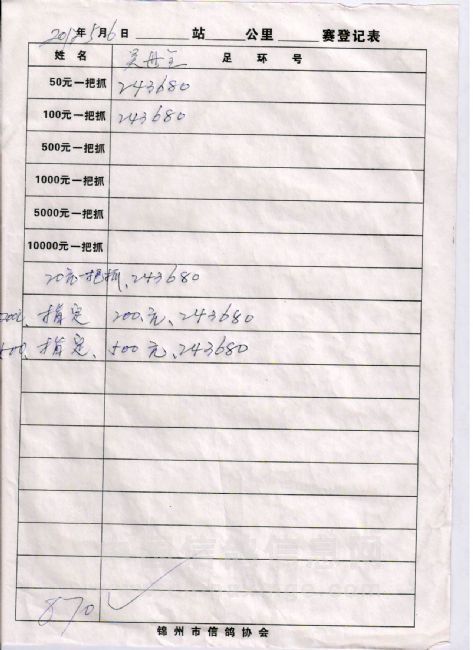 2018年5月6日 站 公里 赛登记表
姓名 吴丹 足环号
50元一把抓 243680
100元一把抓 243680
500元一把抓
1000元一把抓
5000元一把抓
10000元一把抓
20元一把抓、243680
200、指定 200元、243680
500、指定、500元、243680
870 ✓
锦州市信鸽协会